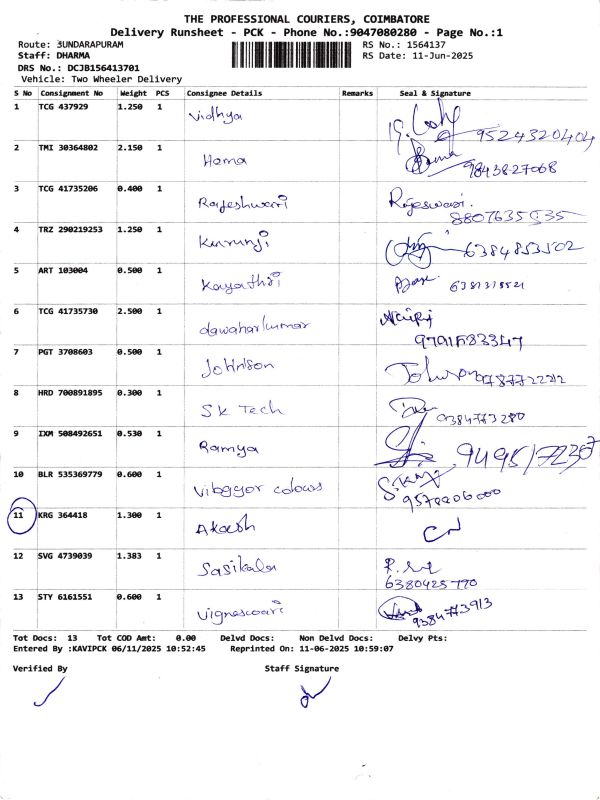 THE PROFESSIONAL COURIERS, COIMBATORE
Delivery Runsheet - PCK - Phone No.:9047080280 - Page No.:1
Route: SUNDARAPURAM RS No.: 1564137
Staff: DHARMA RS Date: 11-Jun-2025
DRS No.: DCJB156413701
Vehicle: Two Wheeler Delivery
S No Consignment No Weight PCS Consignee Details Remarks Seal & Signature
1 TCG 437929 1.250 1 Vidhya 9524320404
2 TMI 30364802 2.150 1 Hema 9843827068
3 TCG 41735206 0.400 1 Rajeshwari Rajeswari. 8807635535
4 TRZ 290219253 1.250 1 Kurunji 6384853502
5 ART 103004 0.500 1 Kayathri
6 TCG 41735730 2.500 1 Jawaharkumar
7 PGT 3708603 0.500 1 Johnson
8 HRD 700891895 0.300 1 SK Tech
9 IXM 508492651 0.530 1 Ramya
10 BLR 535369779 0.600 1 Vibgyor colours
11 KRG 364418 1.300 1 Akash
12 SVG 4739039 1.383 1 Sasikala
13 STY 6161551 0.600 1 Vigneswari 9384773913
Tot Docs: 13 Tot COD Amt: 0.00 Delvd Docs: Non Delvd Docs: Delvy Pts:
Entered By :KAVIPCK 06/11/2025 10:52:45 Reprinted On: 11-06-2025 10:59:07
Verified By Staff Signature